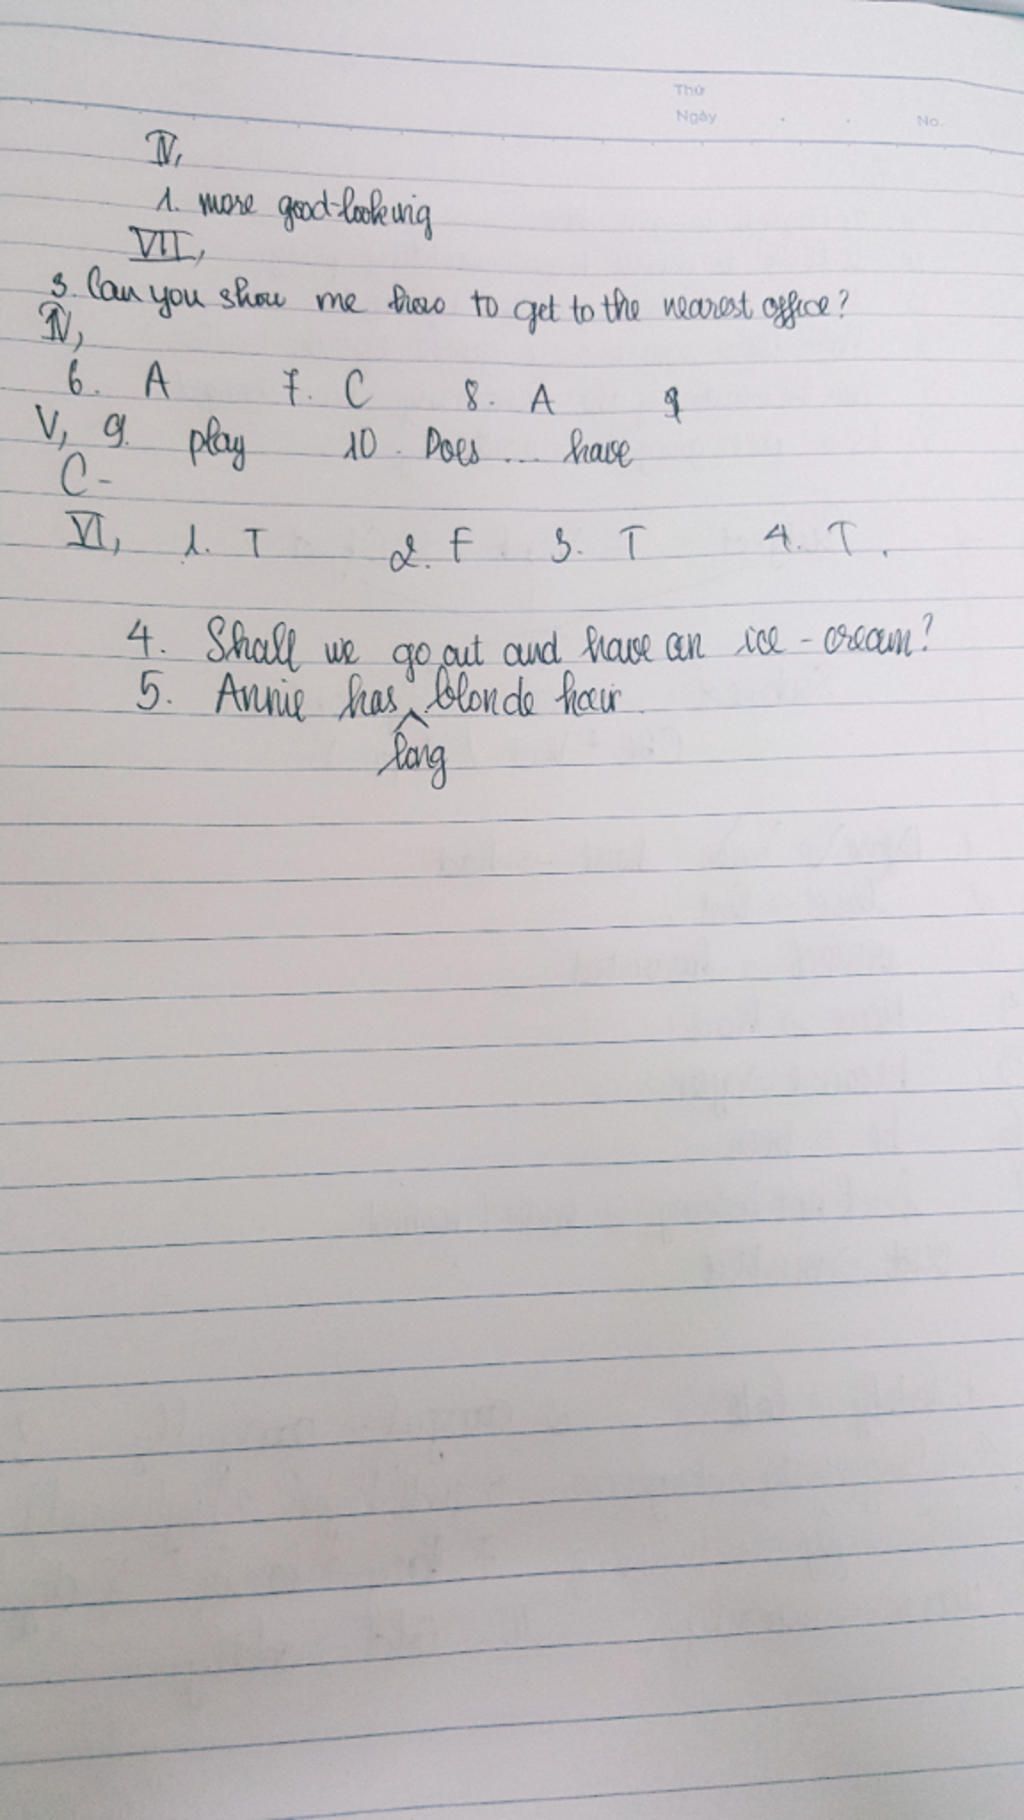 Thứ
Ngày . . No.
IV,
1. more good-looking
VII,
3. Can you show me how to get to the nearest office?
IV,
6. A 7. C 8. A 9
V, 9. play 10. Does ... have
C-
VI, 1. T 2. F 3. T 4. T.
4. Shall we go out and have an ice-cream?
5. Annie has ^ blonde hair.
long